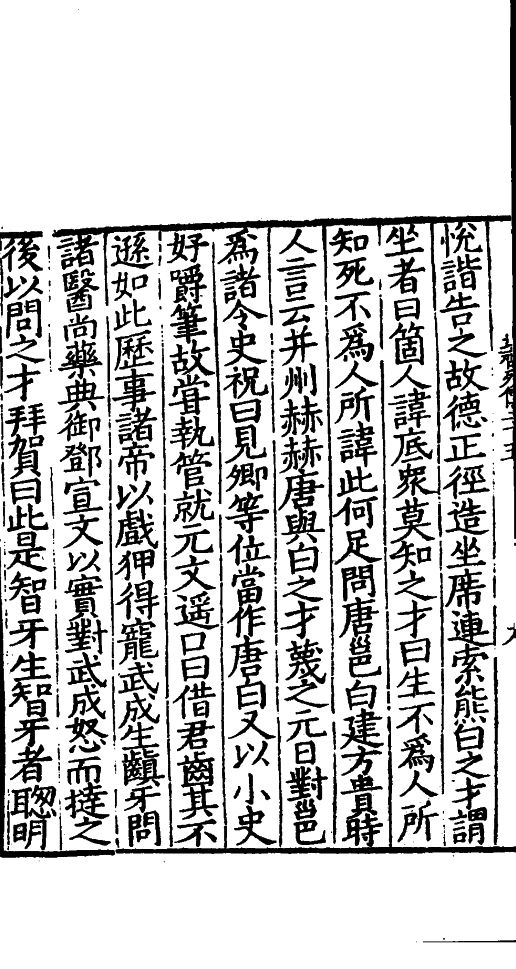 悅諧告之故德正徑造坐席連索熊白之才謂
坐者曰箇人諱底衆莫知之才曰生不爲人所
知死不爲人所諱此何足問唐邕白建方貴時
人言云并州赫赫唐與白之才蔑之元日對邕
爲諸令史祝曰見卿等位當作唐白又以小史
好嚼筆故甞執管就元文遥口曰借君齒其不
遜如此歷事諸帝以戲狎得寵武成生齻牙問
諸醫尚藥典御鄧宣文以實對武成怒而撻之
後以問之才拜賀曰此是智牙生智牙者聰明